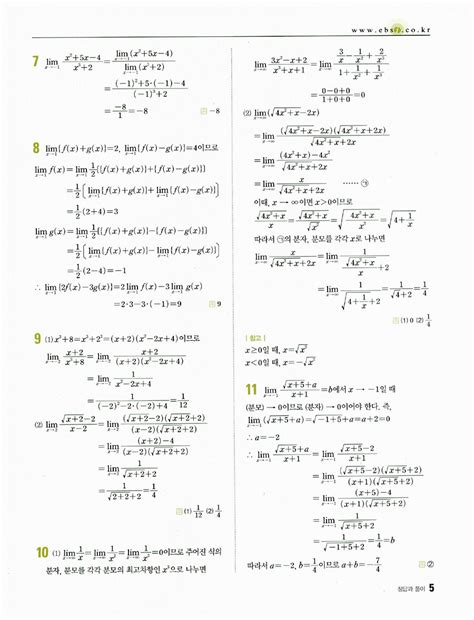 www.ebsi.co.kr
7 lim_{x→-1} (x²+5x-4)/(x³+2) = lim_{x→-1}(x²+5x-4) / lim_{x→-1}(x³+2)
= ((-1)²+5·(-1)-4)/((-1)³+2)
= -8/1 = -8 답 -8
8 lim_{x→1}{f(x)+g(x)}=2, lim_{x→1}{f(x)-g(x)}=4이므로
lim_{x→1} f(x)=lim_{x→1} 1/2[{f(x)+g(x)}+{f(x)-g(x)}]
=1/2[lim_{x→1}{f(x)+g(x)}+lim_{x→1}{f(x)-g(x)}]
=1/2(2+4)=3
lim_{x→1} g(x)=lim_{x→1} 1/2[{f(x)+g(x)}-{f(x)-g(x)}]
=1/2[lim_{x→1}{f(x)+g(x)}-lim_{x→1}{f(x)-g(x)}]
=1/2(2-4)=-1
∴ lim_{x→1}{2f(x)-3g(x)}=2 lim_{x→1} f(x)-3 lim_{x→1} g(x)
=2·3-3·(-1)=9 답 9
9 (1) x³+8=x³+2³=(x+2)(x²-2x+4)이므로
lim_{x→-2} (x+2)/(x³+8) = lim_{x→-2} (x+2)/((x+2)(x²-2x+4))
= lim_{x→-2} 1/(x²-2x+4)
= 1/((-2)²-2·(-2)+4) = 1/12
(2) lim_{x→2} (√(x+2)-2)/(x-2) = lim_{x→2} ((√(x+2)-2)(√(x+2)+2))/((x-2)(√(x+2)+2))
= lim_{x→2} ((x+2)-4)/((x-2)(√(x+2)+2))
= lim_{x→2} 1/(√(x+2)+2)
= 1/(√(2+2)+2) = 1/4
답 (1) 1/12 (2) 1/4
10 (1) lim_{x→∞} 1/x = lim_{x→∞} 1/x² = lim_{x→∞} 1/x³ = 0이므로 주어진 식의
분자, 분모를 각각 분모의 최고차항인 x³으로 나누면
lim_{x→∞} (3x²-x+2)/(x³+x+1) = lim_{x→∞} (3/x - 1/x² + 2/x³)/(1 + 1/x² + 1/x³)
= (0-0+0)/(1+0+0) = 0
(2) lim_{x→∞}(√(4x²+x)-2x)
= lim_{x→∞} ((√(4x²+x)-2x)(√(4x²+x)+2x))/(√(4x²+x)+2x)
= lim_{x→∞} ((4x²+x)-4x²)/(√(4x²+x)+2x)
= lim_{x→∞} x/(√(4x²+x)+2x) ······ ㉠
이때, x → ∞이면 x>0이므로
√(4x²+x)/x = √(4x²+x)/√x² = √((4x²+x)/x²) = √(4+1/x)
따라서 ㉠의 분자, 분모를 각각 x로 나누면
lim_{x→∞} x/(√(4x²+x)+2x) = lim_{x→∞} 1/(√(4+1/x)+2)
= 1/(√4+2) = 1/4
답 (1) 0 (2) 1/4
[참고]
x≥0일 때, x=√x²
x<0일 때, x=-√x²
11 lim_{x→-1} (√(x+5)+a)/(x+1) = b에서 x → -1일 때
(분모) → 0이므로 (분자) → 0이어야 한다. 즉,
lim_{x→-1}(√(x+5)+a)=√(-1+5)+a=a+2=0
∴ a=-2
∴ lim_{x→-1} (√(x+5)+a)/(x+1) = lim_{x→-1} (√(x+5)-2)/(x+1)
= lim_{x→-1} ((√(x+5)-2)(√(x+5)+2))/((x+1)(√(x+5)+2))
= lim_{x→-1} ((x+5)-4)/((x+1)(√(x+5)+2))
= lim_{x→-1} 1/(√(x+5)+2)
= 1/(√(-1+5)+2) = 1/4
따라서 a=-2, b=1/4이므로 a+b=-7/4 답 ②
정답과 풀이 5